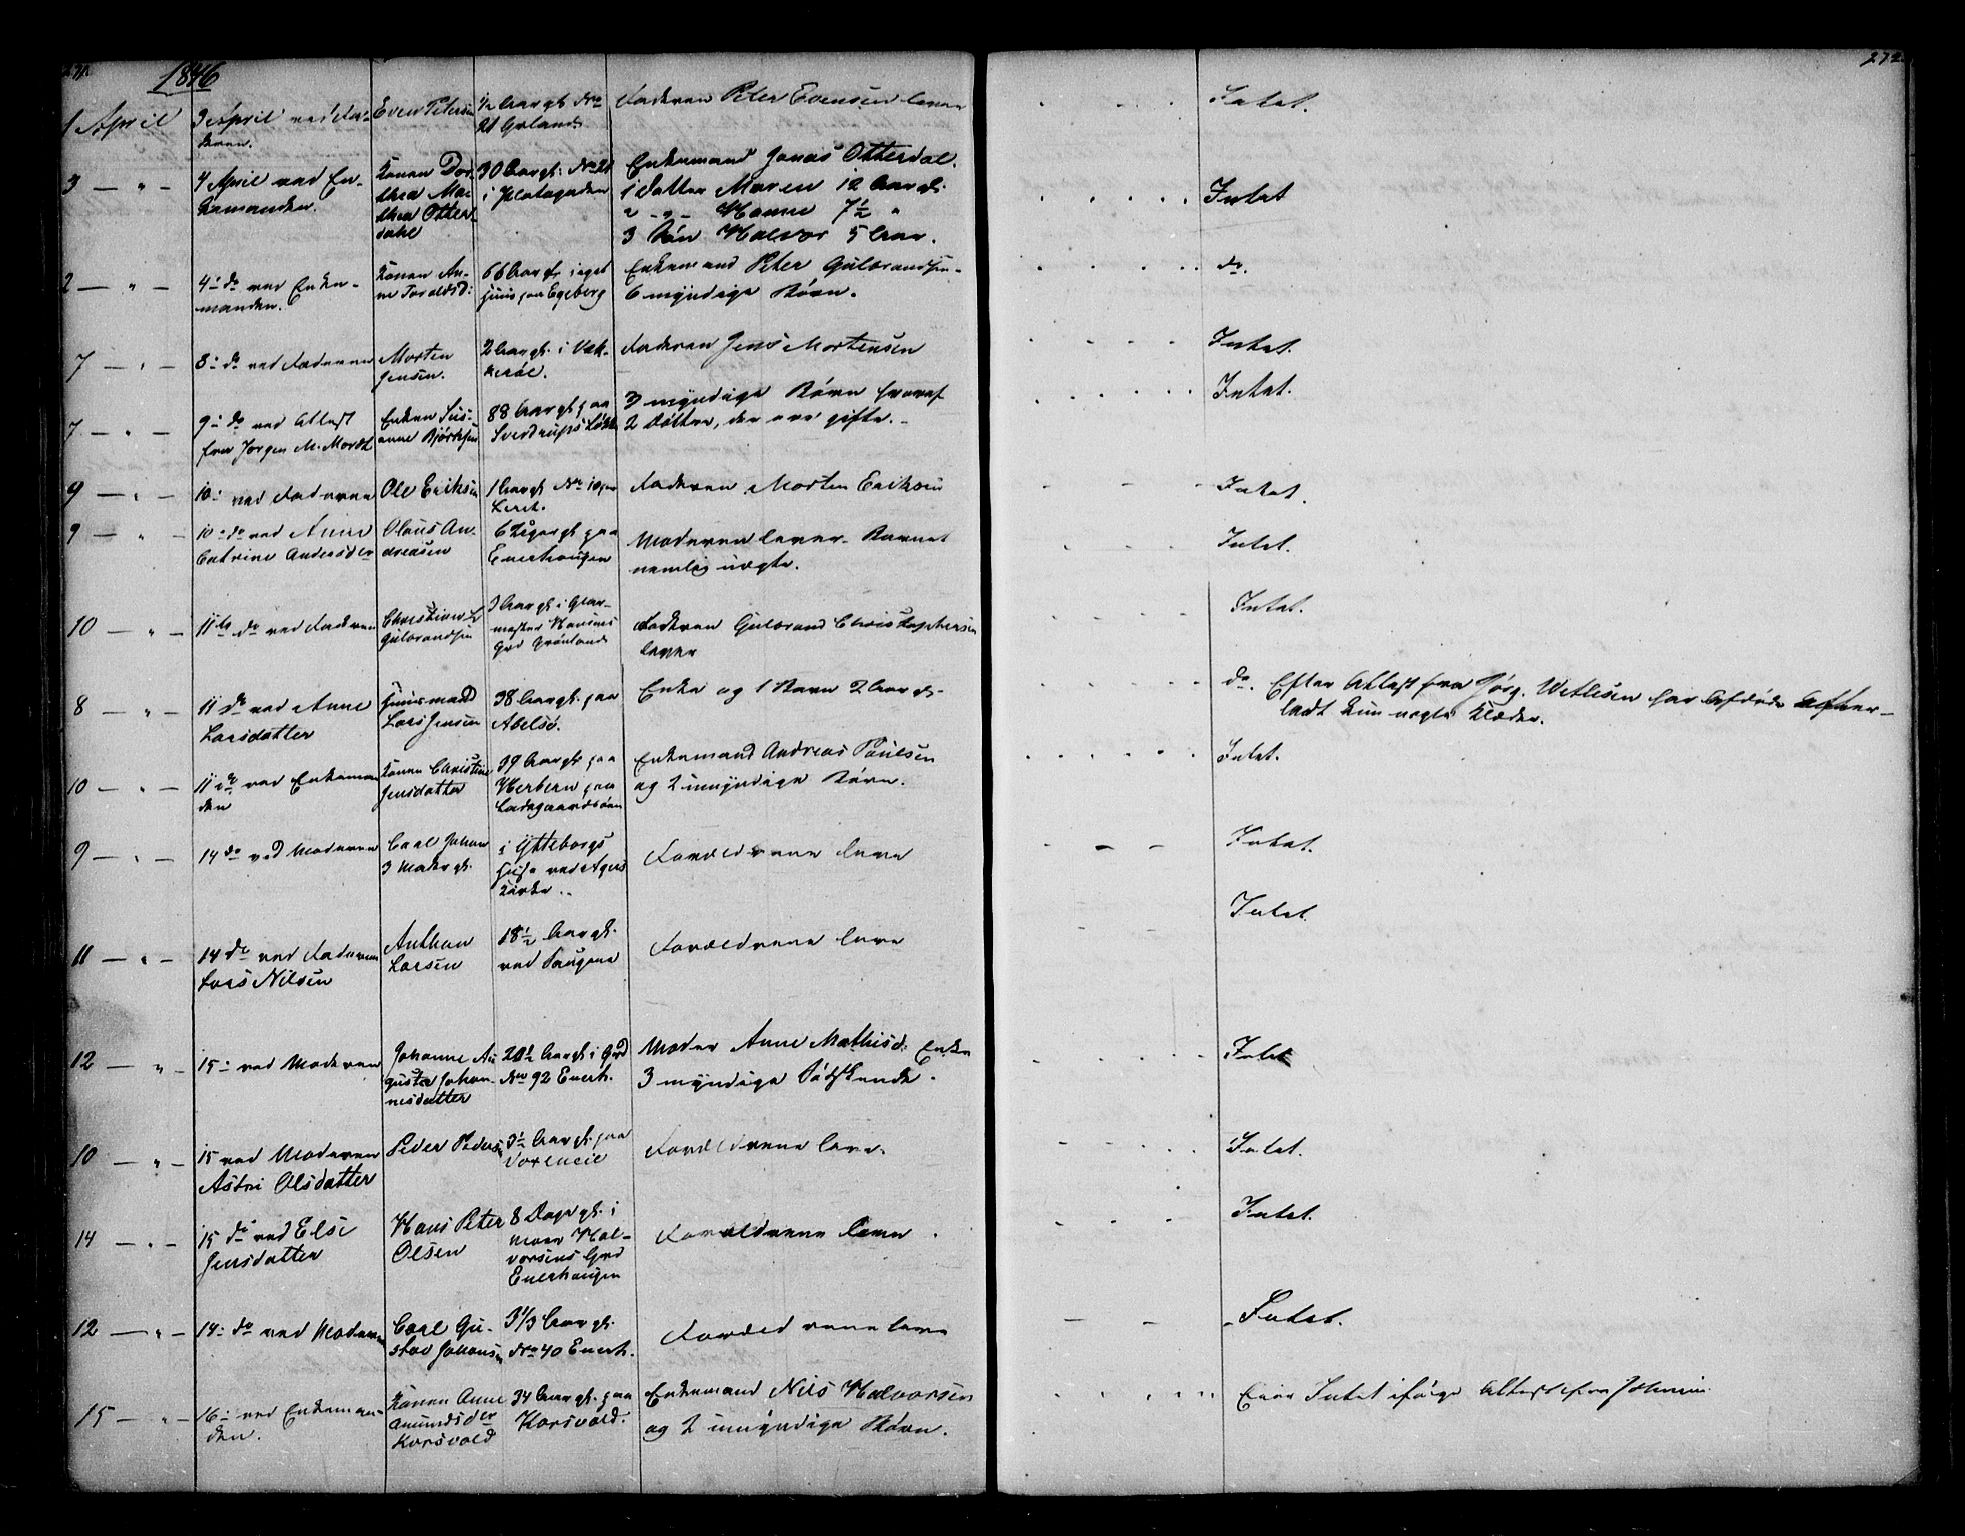 271.
1846
272
1 April
3 April ved Fa-
deren.
Even Petersen
1/2 Aar gl. No
21 Grland.
Faderen Peter Evensen lever
Intet.
3 — " —
4 April ved En-
kemanden.
Konen Dor-
thea Ma-
thea Otter-
dahl
30 Aar gl. No 21
i
Enkemand Jonas Otterdal.
1 Datter Maren 12 Aar gl.
2 - " - Hanne 7 1/2 "
3 Søn Halvor 5 Aar.
Intet
2 — " —
4 - do ved Enke-
manden.
Konen An-
ne Toraldsd:
66 Aar gl. i eget
Huus paa Egeberg
Enkemand Peter Gulbrandsen
6 myndige Børn.
do.
7 — " —
8 - do ved Faderen
Morten
Jensen.
2 Aar gl. i Væk-
kerøe.
Faderen Jens Mortensen
Intet.
7 — " —
9 - do ved Attest
fra Jørgen M. Mordt
Enken Sus-
anne Bjørksen
88 Aar gl. paa
Sverdrups Løkke
3 myndige Børn hvoraf
2 Døttre, der ere gifte. -
Intet.
9 — " —
10 - ved Faderen
Ole Eriksen
1 Aar gl. No 10 paa
Leret.
Faderen Morten Eriksen
Intet.
9 — " —
10 - do ved Anne
Catrine Andersdr
Olaus An-
dreasen
6 Uger gl. paa
Enerhaugen
Moderen lever. Barnet
nemlig uægte.
Intet.
10 — " —
11te do ved Faderen
Christian
Gulbrandsen
3 Aar gl. i Glar-
mester Hansens
Grd Grønland
Faderen Gulbrand Christophersen
lever
Intet.
8 — " —
11 do ved Anne
Larsdatter
Huusmand
Lars Jensen
38 Aar gl. paa
Abelsø.
Enke og 1 Barn 2 Aar gl.
do. Efter Attest fra Jørg. Wetlesen har Afdøde efter-
ladt kun nogle Klæder.
10 — " —
11 do ved Enkeman
den
Konen Christine
Jensdatter
39 Aar gl. paa
Herbern paa
Ladegaardsøen
Enkemand Andreas Poulsen
og 2 umyndige Børn.
Intet.
9 — " —
14 do ved Moderen
Carl Johan
3 Mdr gl.
i Ytteborgs
Huse ved Agers
Kirke..
Forældrene leve
Intet.
11 — " —
14 do ved Faderen
Lars Nilsen
Anthon
Larsen
18 1/2 Aar gl.
ved Saugene
Forældrene leve
Intet.
12 — " —
15 - ved Moderen
Johanne Au
gusta Johan-
nesdatter
20 1/2 Aar gl. i Grd
No 92 Enerh.
Moder Anne Mathisd. Enke
3 myndige Sødskende.
Intet
10 — " —
15 ved Moderen
Astri Olsdatter
Peder Pedersen
3 1/2 Aar gl. paa
Forældrene leve.
Intet.
14 — " —
15 do ved Else
Jensdatter
Hans Peter
Olsen
8 Dage gl. i
Hal-
vorsens Grd
Enerhaugen
Forældrene leve.
Intet.
12 — " —
14 - do ved Moderen
Carl Gu-
stav Johansen
3 1/3 Aar gl.
No 40 Enerh.
Forældrene leve
Intet.
15 — " —
16 - ved Enkeman-
den.
Konen Anne
Amundsder
Korsvold
34 Aar gl. paa
Korsvold.
Enkemand Nils Halvorsen
og 2 umyndige Børn.
Eier Intet ifølge Attest fra